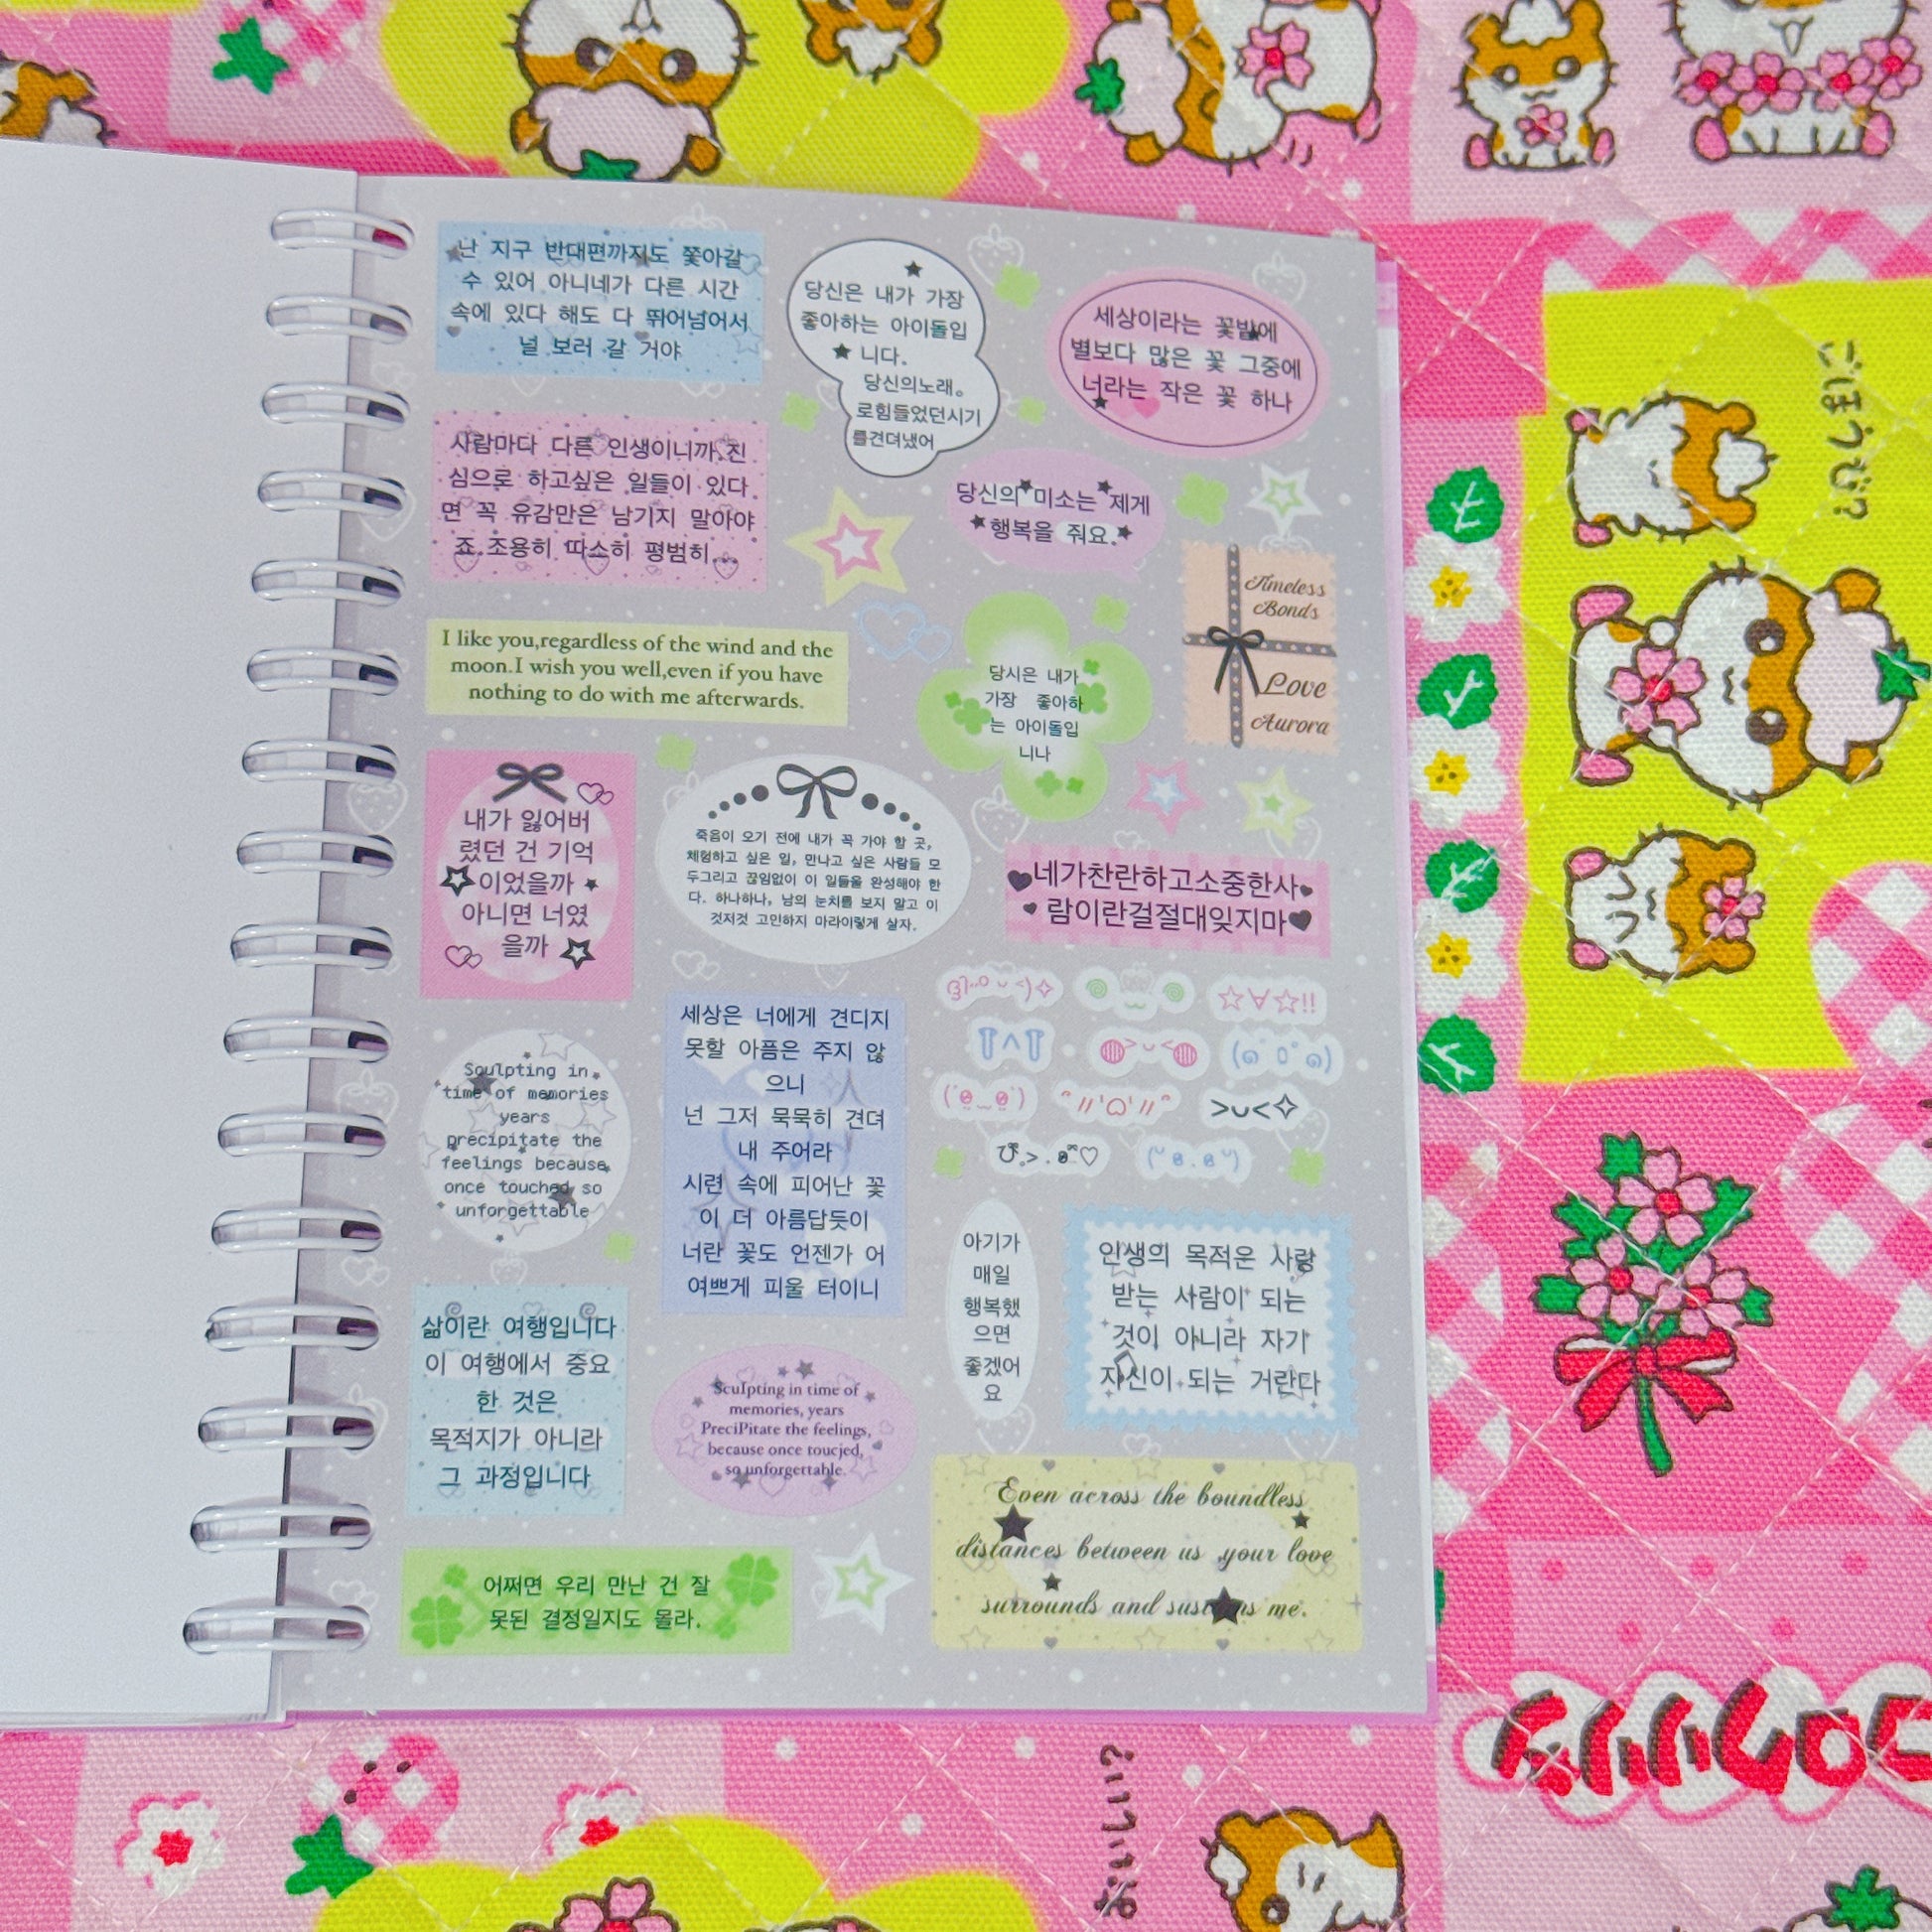 난 지구 반대편까지도 쫓아갈
수 있어 아니네가 다른 시간
속에 있다 해도 다 뛰어넘어서
널 보러 갈 거야
당신은 내가 가장
좋아하는 아이돌입
니다.
당신의노래。
로힘들었던시기
를견뎌냈어
세상이라는 꽃밭에
별보다 많은 꽃 그중에
너라는 작은 꽃 하나
사람마다 다른 인생이니까,진
심으로 하고싶은 일들이 있다
면 꼭 유감만은 남기지 말아야
죠.조용히 따소히 평범히
당신의 미소는 제게
행복을 줘요.
Timeless
Bonds
Love
Aurora
I like you,regardless of the wind and the
moon.I wish you well,even if you have
nothing to do with me afterwards.
당시은 내가
가장 좋아하
는 아이돌입
니나
내가 잃어버
렸던 건 기억
이었을까
아니면 너였
을까
죽음이 오기 전에 내가 꼭 가야 할 곳,
체험하고 싶은 일, 만나고 싶은 사람들 모
두그리고 끊임없이 이 일들울 완성해야 한
다. 하나하나, 남의 눈치를 보지 말고 이
것저것 고민하지 마라이렇게 살자.
네가찬란하고소중한사
람이란걸절대잊지마
Sculpting in
time of memories
years
precipitate the
feelings because
once touched so
unforgettable
세상은 너에게 견디지
못할 아픔은 주지 않
으니
넌 그저 묵묵히 견뎌
내 주어라
시련 속에 피어난 꽃
이 더 아름답듯이
너란 꽃도 언젠가 어
여쁘게 피울 터이니
>ᴗ<✧
아기가
매일
행복했
으면
좋겠어
요
인생의 목적운 사랑
받는 사람이 되는
것이 아니라 자기
자신이 되는 거란다
삶이란 여행입니다
이 여행에서 중요
한 것은
목적지가 아니라
그 과정입니다
Sculpting in time of
memories, years
PreciPitate the feelings,
because once toucjed,
so unforgettable.
Even across the boundless
distances between us ,your love
surrounds and sustains me.
어쩌면 우리 만난 건 잘
못된 결정일지도 몰라.
ごほうび?
コロクリツ